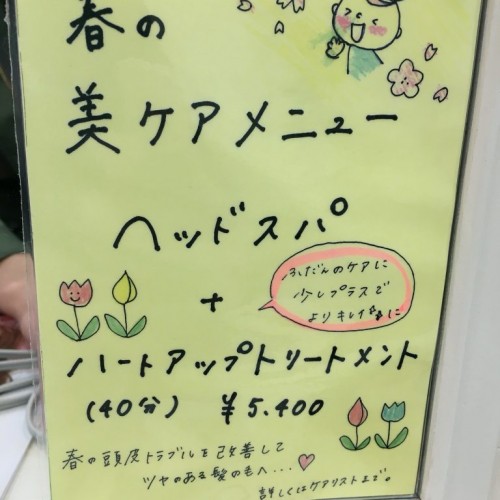 春の
美ケアメニュー
ヘッドスパ
+
ふだんのケアに
少しプラスで
よりキレイに
ハートアップトリートメント
(40分) ¥5.400
春の頭皮トラブルを改善して
ツヤのある髪の毛へ...♡
詳しくはケアリストまで。